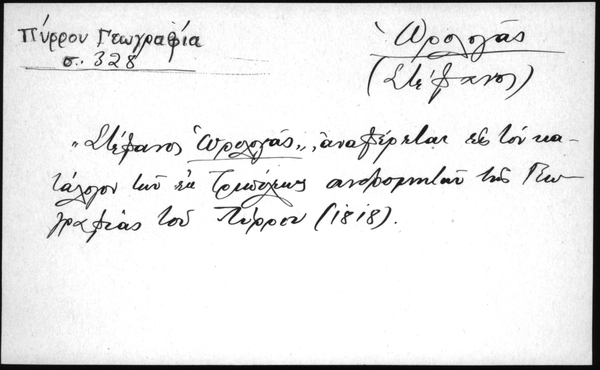 Πύρρου Γεωγραφία
σ. 328
Ὡρολογάς
(Στέφανος)
"Στέφανος Ὡρολογάς", ἀναφέρεται εἰς τὸν κα-
τάλογον τῶν ἐκ Τριπόλεως συνδρομητῶν τῆς Γεω-
γραφίας τοῦ Πύρρου (1818).